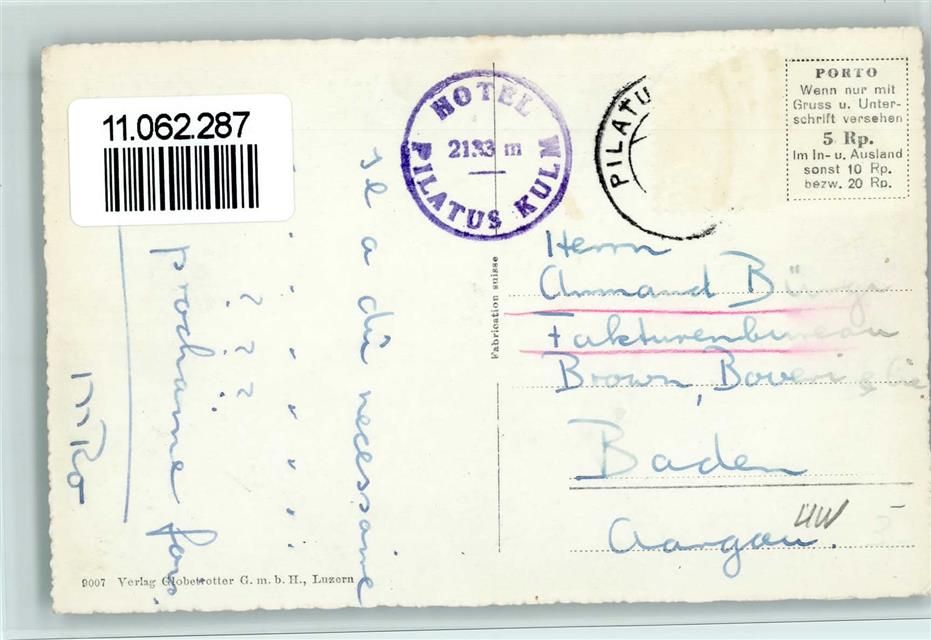 11.062.287
HOTEL
2133 m
PILATUS KULM
PILATU
PORTO
Wenn nur mit
Gruss u. Unter-
schrift versehen
5 Rp.
Im In- u. Ausland
sonst 10 Rp.
bezw. 20 Rp.
Fabrication suisse
Herrn
Armand
Fakturenbureau
Brown, Boveri & Cie
Baden
Aargau.
a dû necessaire
" " " " " "
? ? ?
prochaine fois.
9007 Verlag Globetrotter G. m. b. H., Luzern